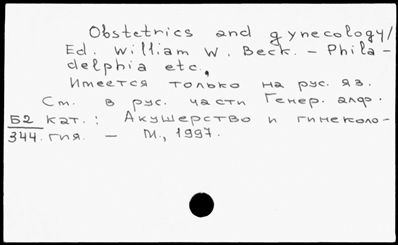 Obstetrics and gynecology/
Ed. William W. Beck. - Phila-
delphia etc.,
Имеется только на рус. яз.
См. в рус. части Генер. алф.
Б2 кат.: Акушерство и гинеколо-
344. гия. - М., 1997.